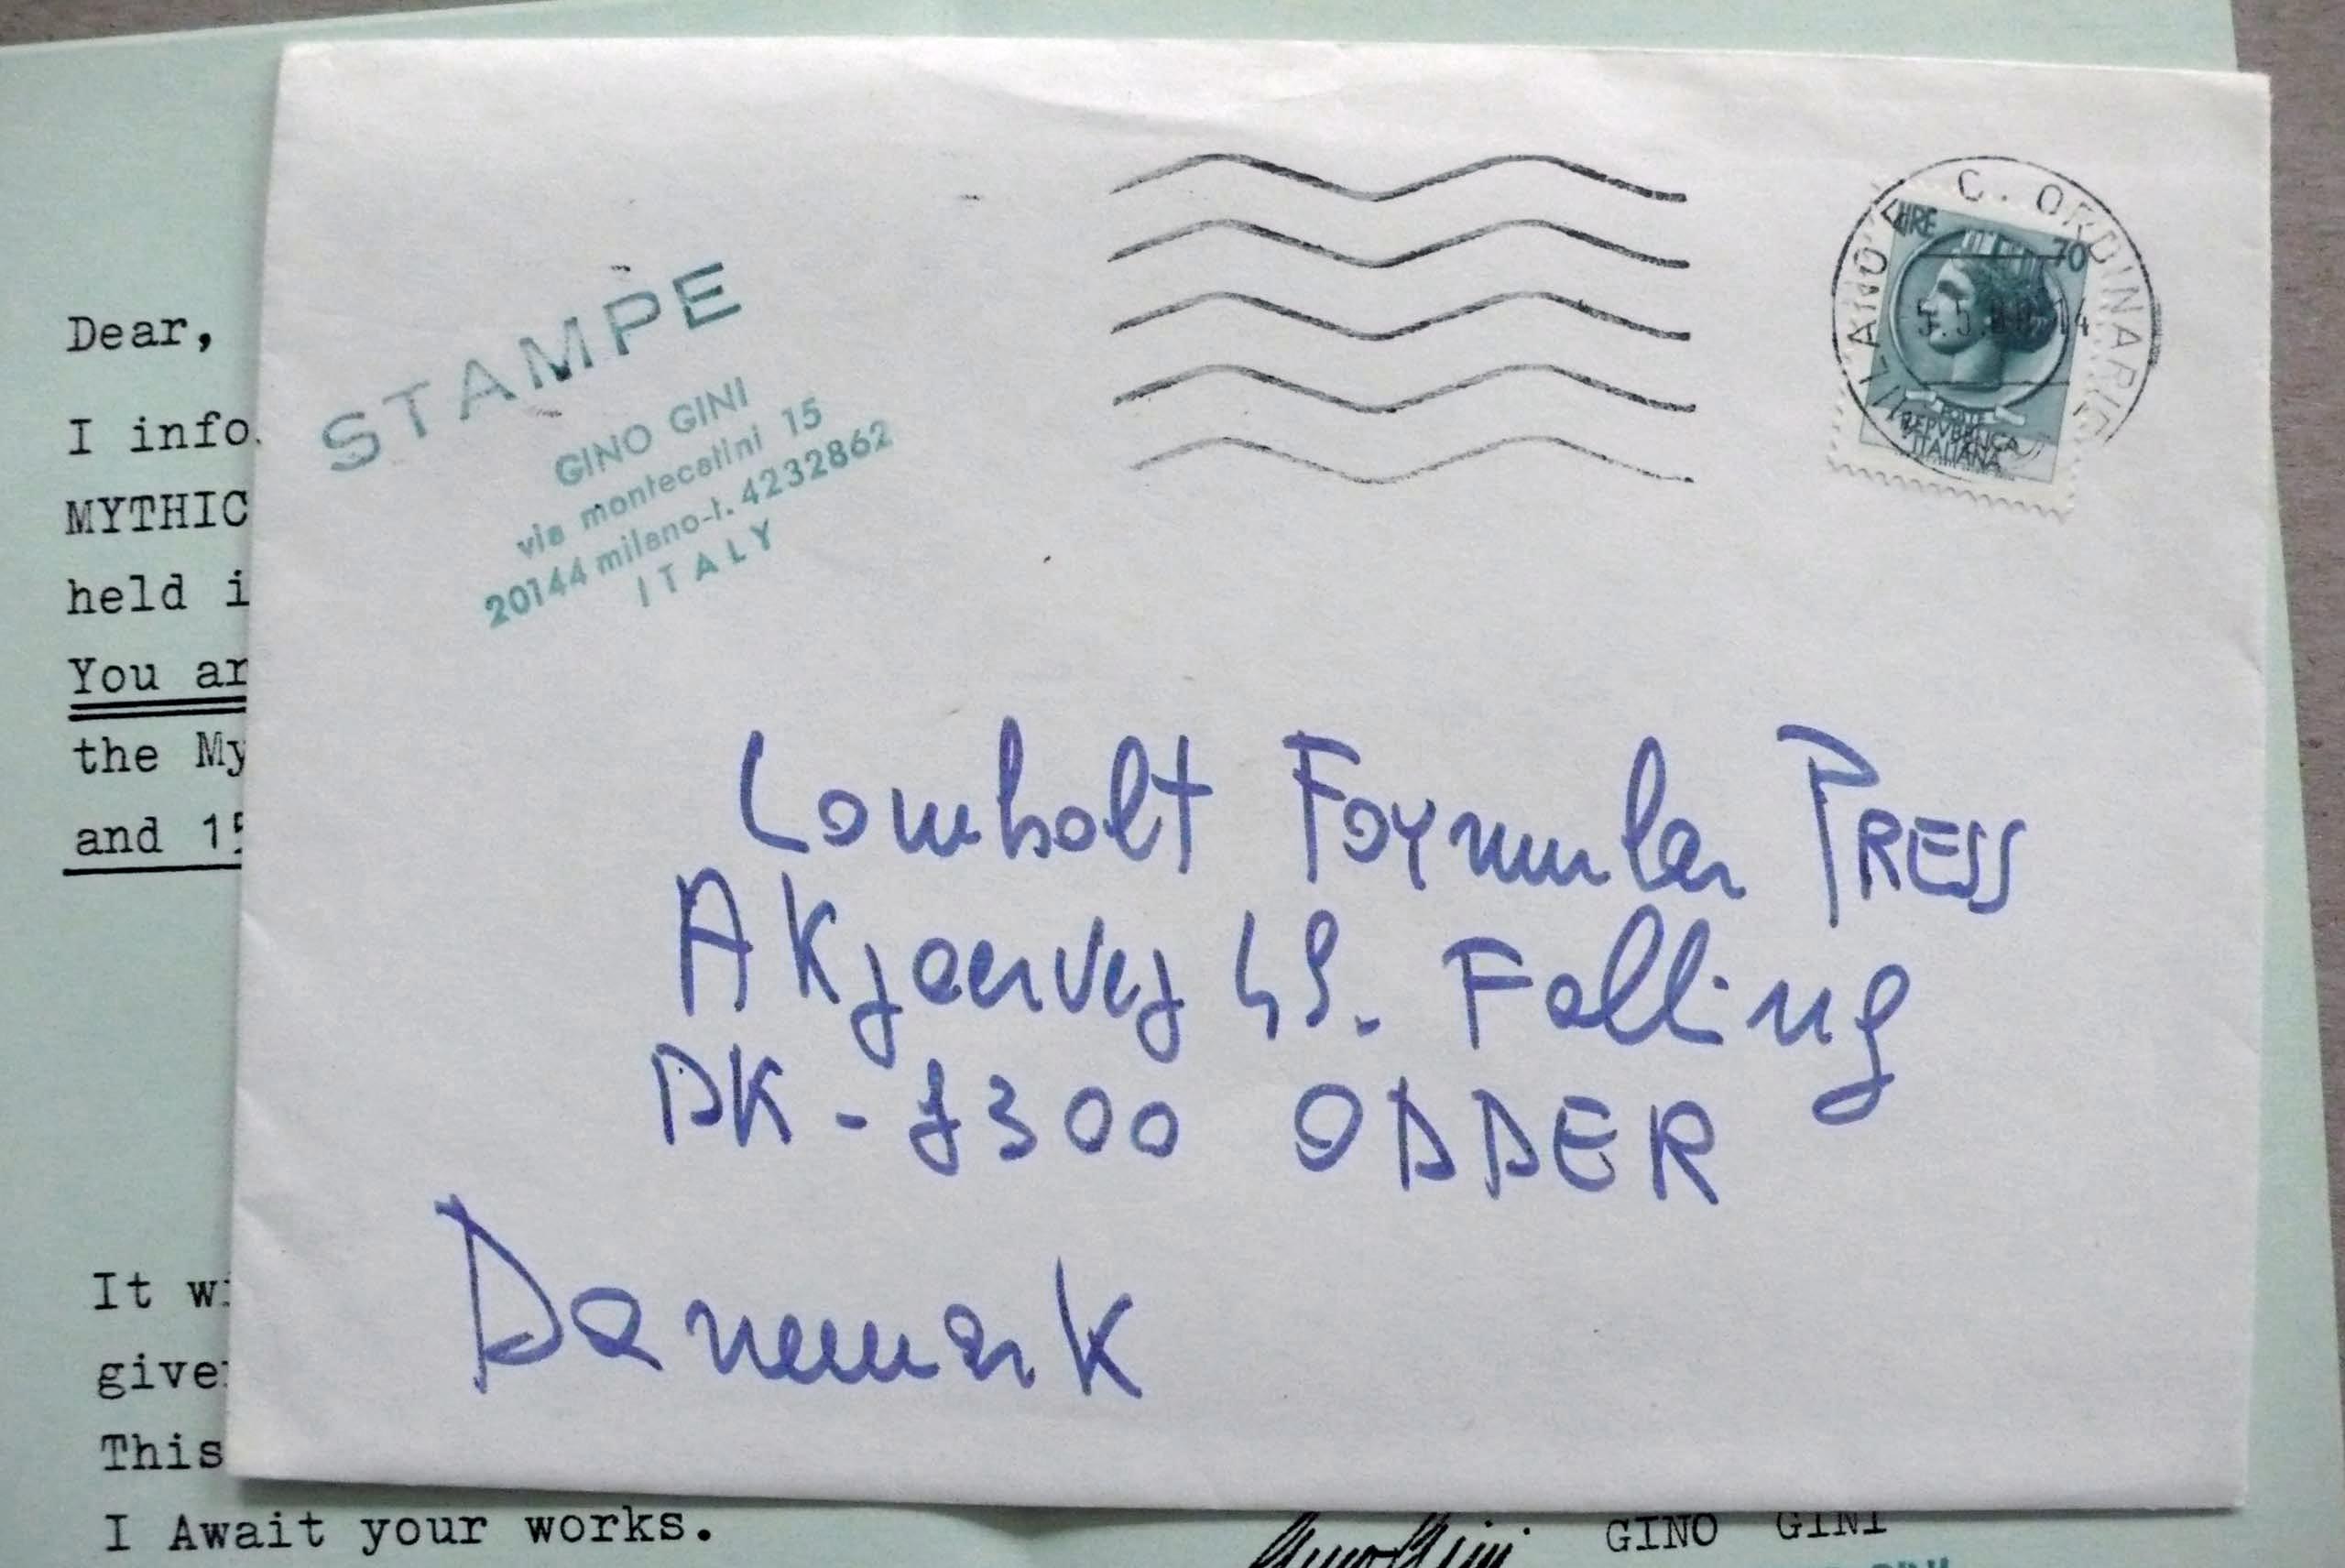 Dear,
I info
MYTHIC
held i
You ar
the My
and 15
It wi
give
This
I Await your works.
GINO GINI
STAMPE
GINO GINI
via montecatini 15
20144 milano-t. 4232862
ITALY
MILANO C. ORDINARIE
LIRE 70
POSTE
REPVBBLICA
ITALIANA
Lomholt Formular PRESS
AKjaervej 49. Falling
DK-8300 ODDER
Danemark